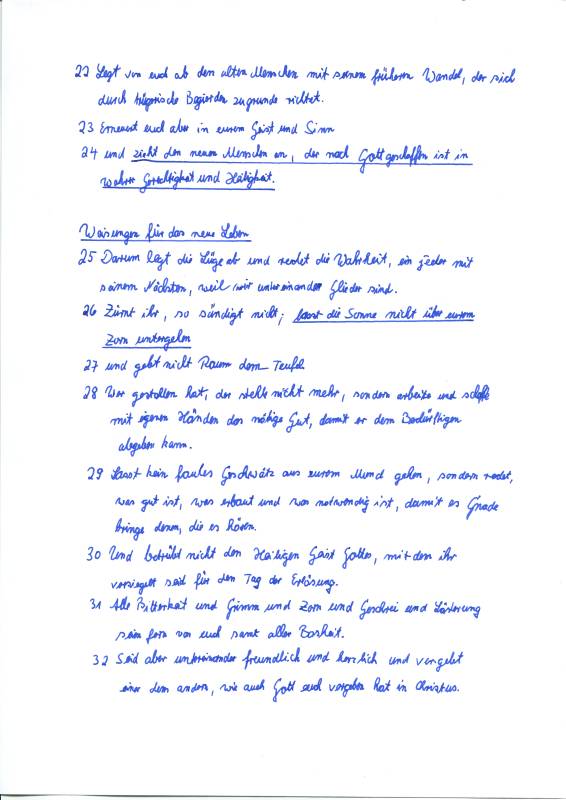 22 Legt von euch ab den alten Menschen mit seinem früheren Wandel, der sich
durch trügerische Begierden zugrunde richtet.
23 Erneuert euch aber in eurem Geist und Sinn
24 und zieht den neuen Menschen an, der nach Gott geschaffen ist in
wahrer Gerechtigkeit und Heiligkeit.
Weisungen für das neue Leben
25 Darum legt die Lüge ab und redet die Wahrheit, ein jeder mit
seinem Nächsten, weil wir untereinander Glieder sind.
26 Zürnt ihr, so sündigt nicht; lasst die Sonne nicht über eurem
Zorn untergehen
27 und gebt nicht Raum dem Teufel
28 Wer gestohlen hat, der stehle nicht mehr, sondern arbeite und schaffe
mit eigenen Händen das nötige Gut, damit er dem Bedürftigen
abgeben kann.
29 Lasst kein faules Geschwätz aus eurem Mund gehen, sondern redet,
was gut ist, was erbaut und was notwendig ist, damit es Gnade
bringe denen, die es hören.
30 Und betrübt nicht den Heiligen Geist Gottes, mit dem ihr
versiegelt seid für den Tag der Erlösung.
31 Alle Bitterkeit und Grimm und Zorn und Geschrei und Lästerung
seien fern von euch samt aller Bosheit.
32 Seid aber untereinander freundlich und herzlich und vergebt
einer dem andern, wie auch Gott euch vergeben hat in Christus.